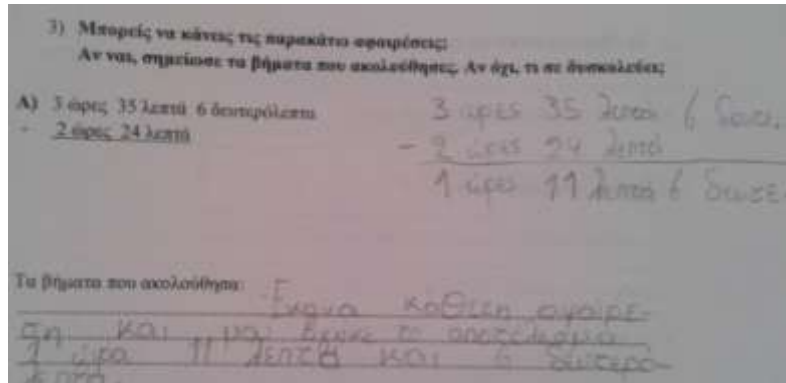 3) Μπορείς να κάνεις τις παρακάτω αφαιρέσεις;
Αν ναι, σημείωσε τα βήματα που ακολούθησες. Αν όχι, τι σε δυσκολεύει;
Α) 3 ώρες 35 λεπτά 6 δευτερόλεπτα
- 2 ώρες 24 λεπτά
3 ώρες 35 λεπτά 6
- 2 ώρες 24 λεπτά
1 ώρες 11 λεπτά 6
Τα βήματα που ακολούθησα:
Έκανα κάθετη αφαίρε-
ση και το αποτέλεσμα
1 ώρα 11 λεπτά και 6 δευτερό-
λεπτα